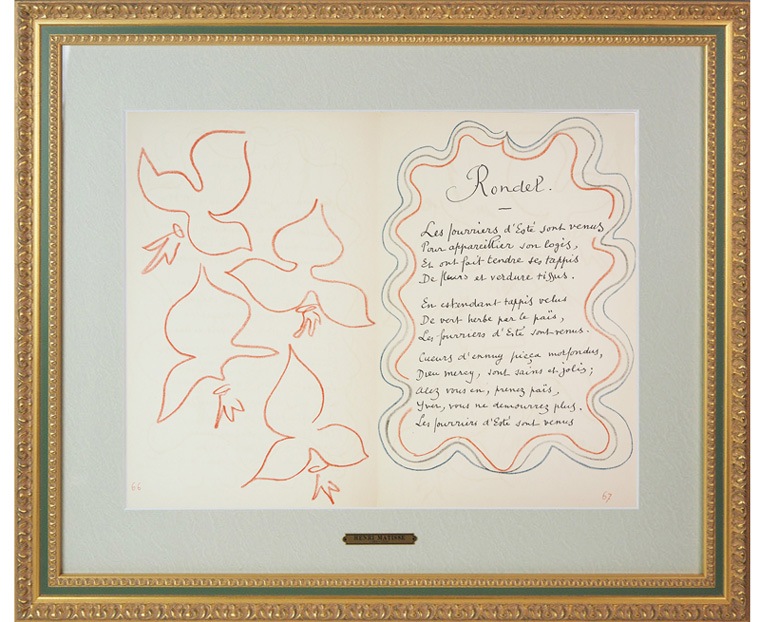 Rondel.
Les fourriers d'Esté sont venus
Pour appareillier son logis,
Et ont fait tendre ses tappis
De fleurs et verdure tissus.
En estendant tappis velus
De vert herbe par le païs,
Les fourriers d'Esté sont venus.
Cueurs d'ennuy pieça morfondus,
Dieu mercy, sont sains et jolis;
Alez vous en, prenez païs,
Yver, vous ne demourrez plus.
Les fourriers d'Esté sont venus
66
67
HENRI MATISSE